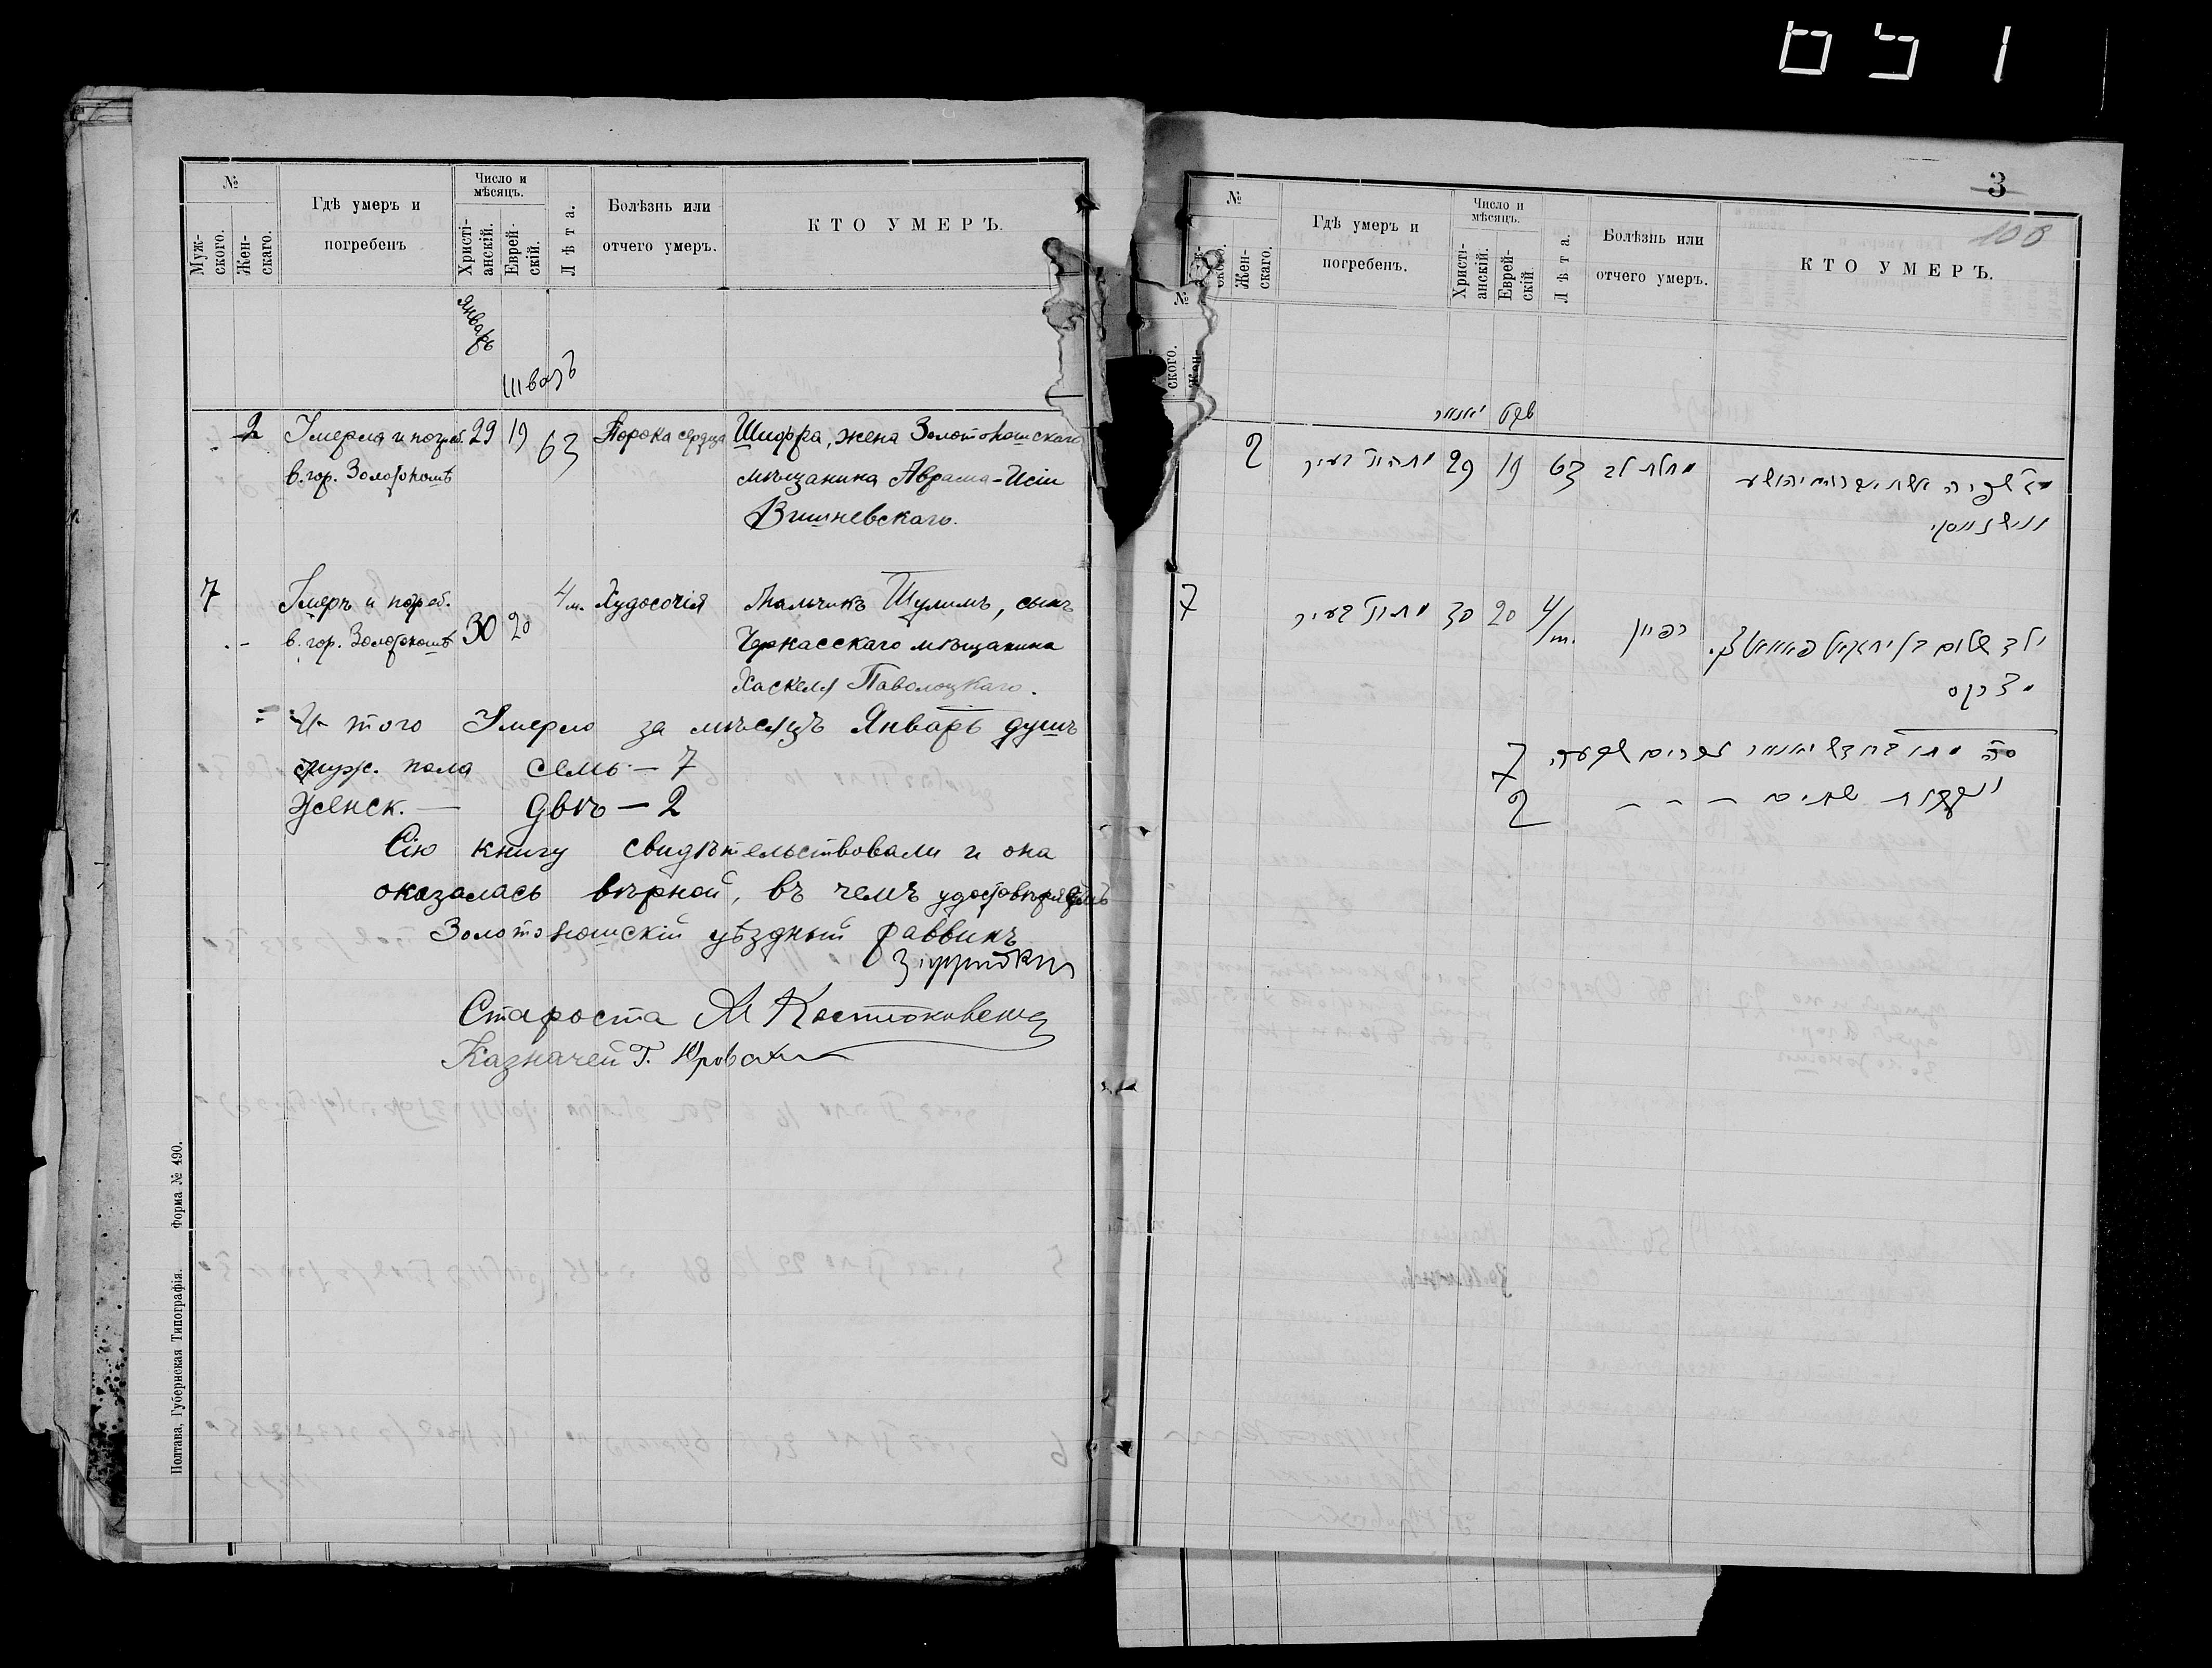 №
Муж-
скаго.
Жен-
скаго.
Гдѣ умеръ и
погребенъ
Число и
мѣсяцъ.
Христі-
анскій.
Еврей-
скій.
Лѣта.
Болѣзнь или
отчего умеръ.
КТО УМЕРЪ.
Январь
Шватъ
2 Умерла и погреб. 29 19 63 Порока сердца Шифра, жена Золотоношскаго
в. гор. Золотоношѣ мѣщанина Аврама-
Вишневскаго.
7 Умеръ и погреб. 30 20 4 м. Худосочія Мальчикъ Шулимъ, сынъ
в. гор. Золотоношѣ Черкасскаго мѣщанина
Хаскеля Паволоцкаго.
И того Умерло за мѣсяцъ Январь душъ
муж. пола семь — 7
Женск. — двѣ — 2
Сію книгу свидѣтельствовали и она
оказалась вѣрной, въ чемъ удостовѣряемъ
Золотоношскій уѣздный раввинъ
Староста М
Казначей Г.
Полтава, Губернская Типографія. Форма № 490.
3
108
№
Жен-
скаго.
Гдѣ умеръ и
погребенъ.
Число и
мѣсяцъ.
Христі-
анскій.
Еврей-
скій
Лѣта.
Болѣзнь или
отчего умеръ.
КТО УМЕРЪ.
№
ского.
Жен-
שבט יאנואר
2 29 19 63 מחלת לב שפרה אשת יהושע
ווישנעווסקי
7 30 20 4/m. רפיון ילד שלום בן
סה מתו בחדש יאנואר זכרים שבעה 7
ונקבות שתים — — — 2